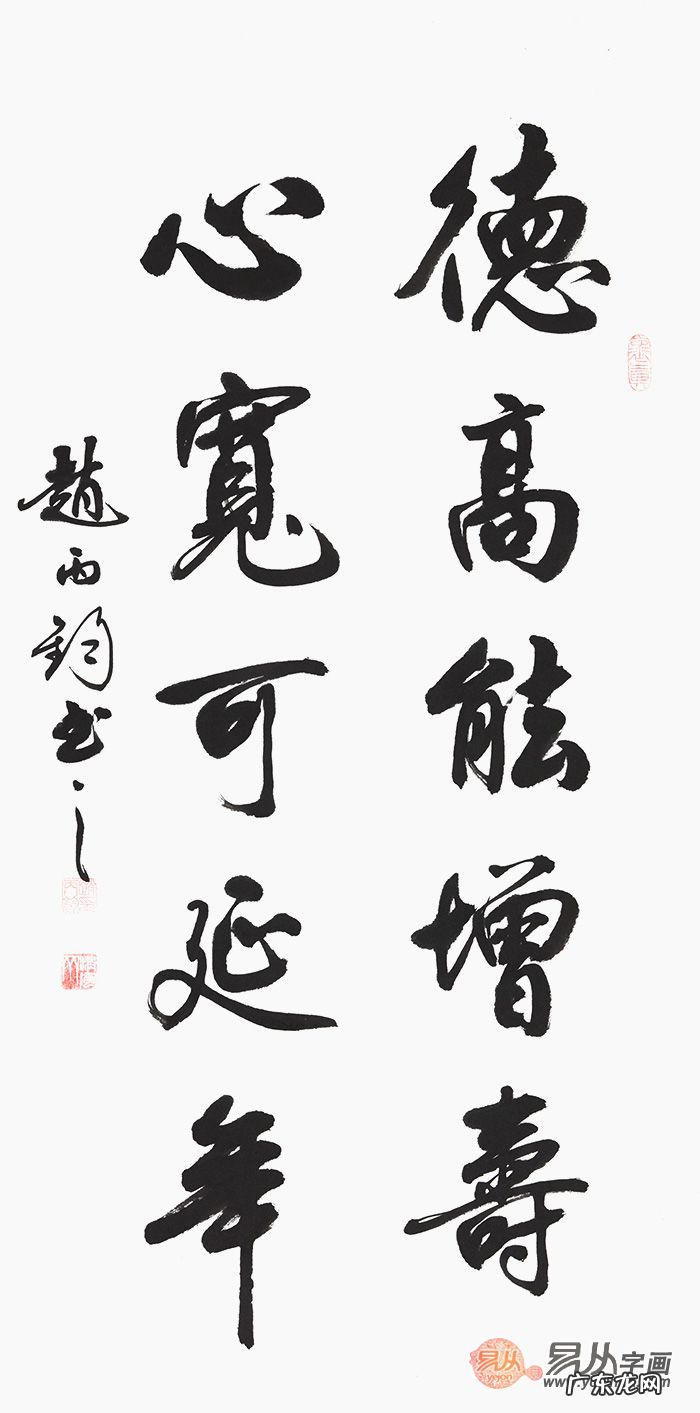 德高能增壽
心寬可延年
趙雨鈞书之
易从
yicon
易从字画
广东龙网